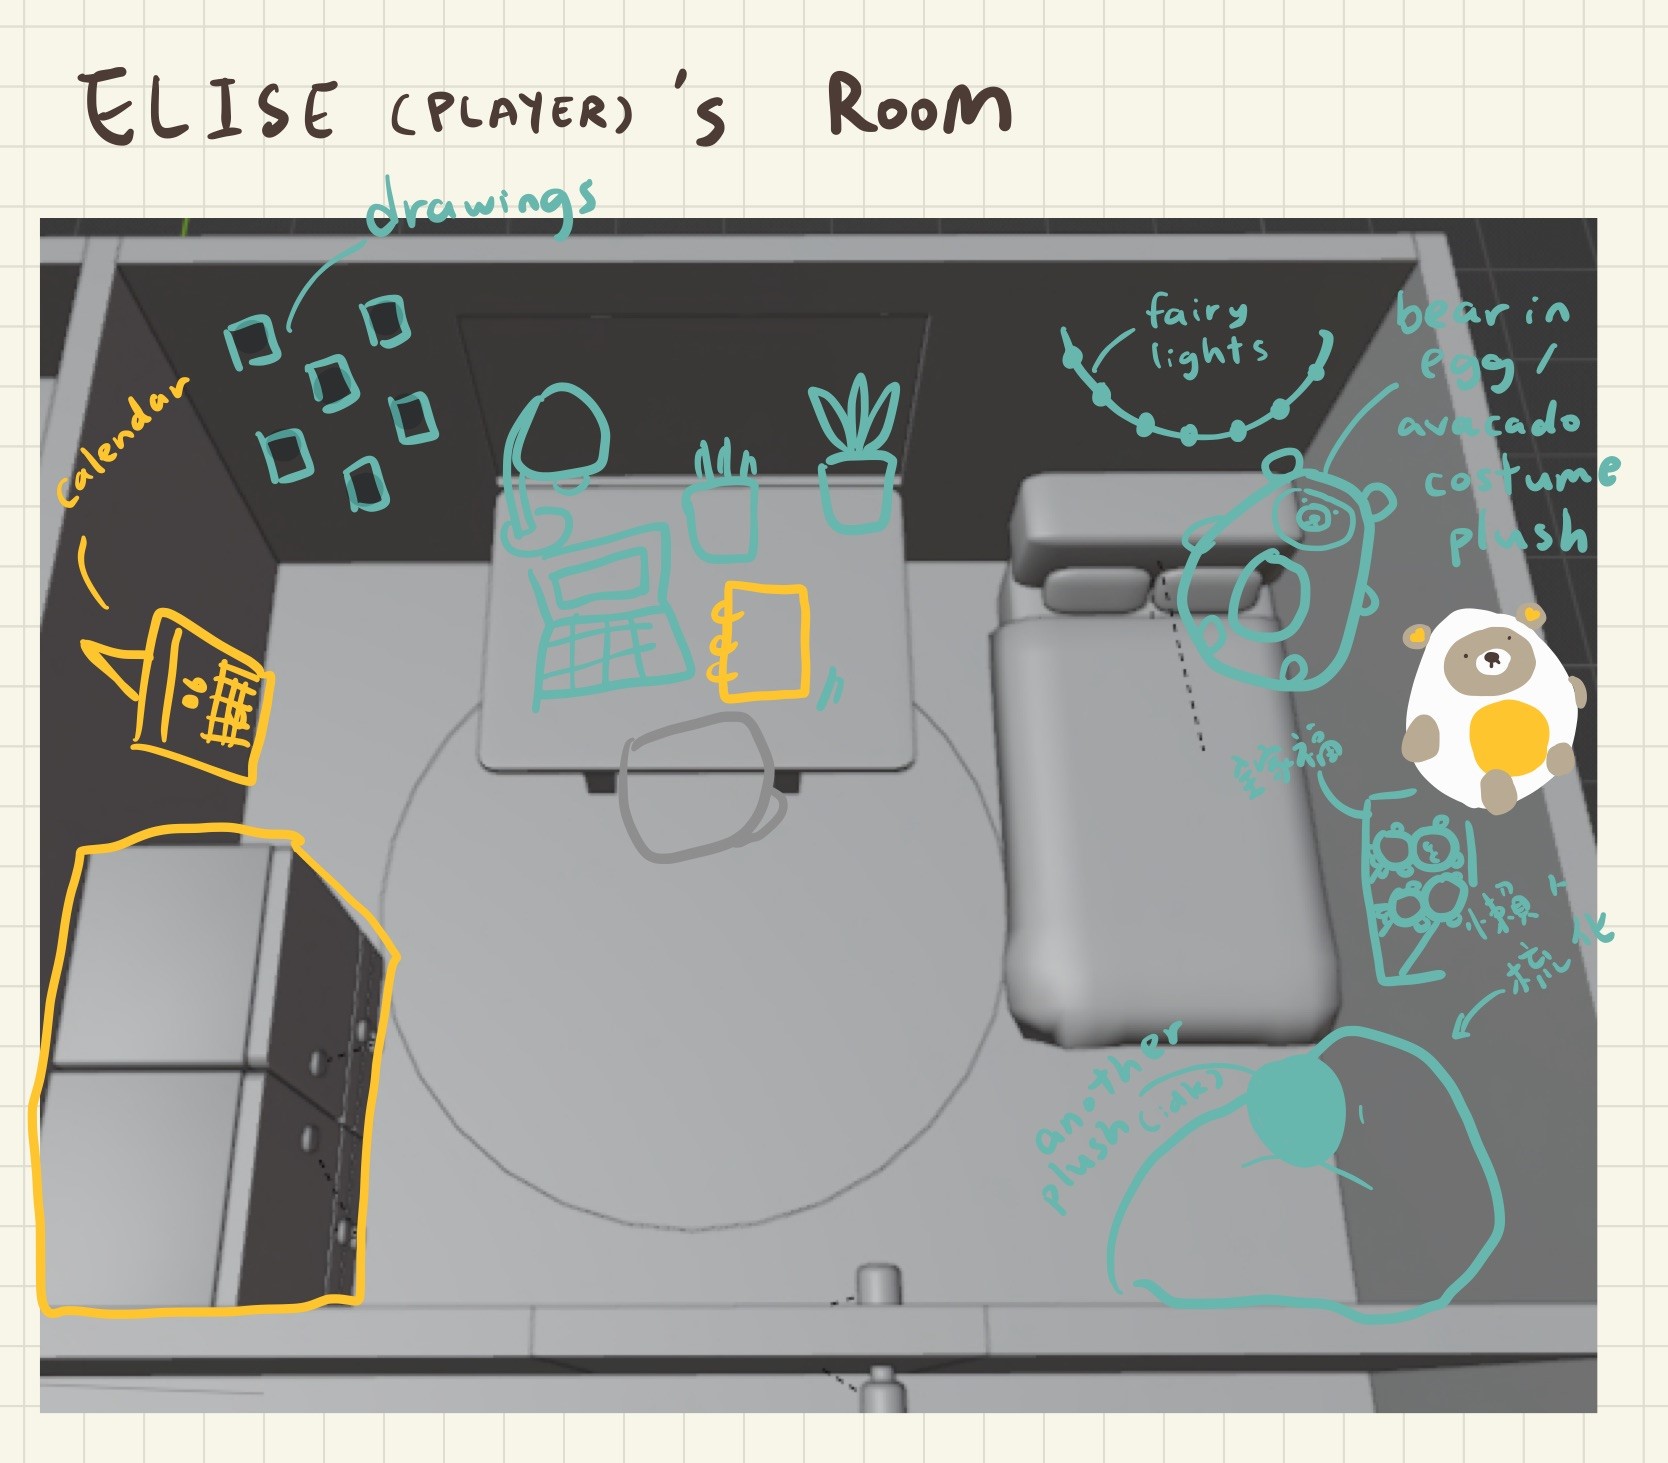 ELISE (PLAYER)'s Room
drawings
calendar
fairy
lights
bear in
egg /
avacado
costume
plush
another
plush (idk)